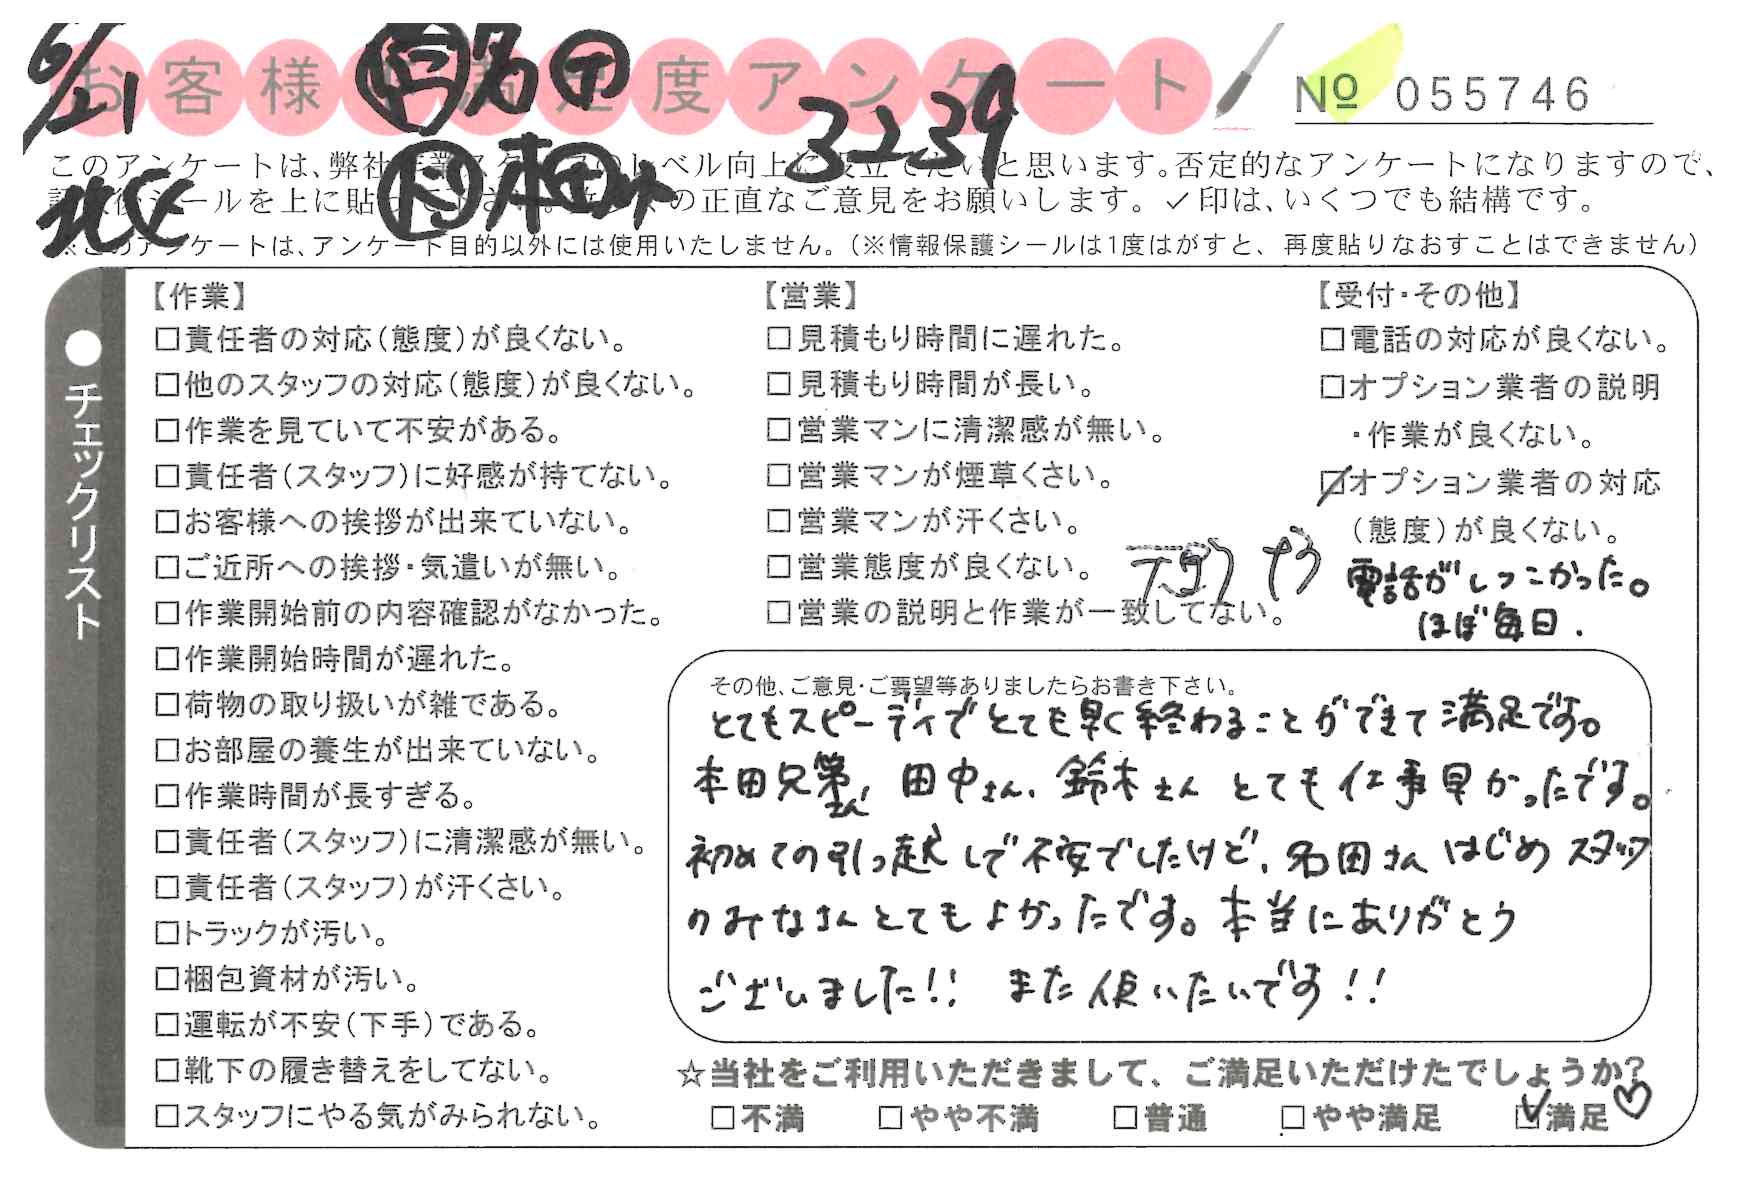 6/21
お客様ご満足度アンケート
№ 055746
3239
このアンケートは、弊社作業スタッフのレベル向上に役立てたいと思います。否定的なアンケートになりますので、
シールを上に貼って の正直なご意見をお願いします。✓印は、いくつでも結構です。
※このアンケートは、アンケート目的以外には使用いたしません。(※情報保護シールは1度はがすと、再度貼りなおすことはできません)
●チェックリスト
【作業】
□責任者の対応(態度)が良くない。
□他のスタッフの対応(態度)が良くない。
□作業を見ていて不安がある。
□責任者(スタッフ)に好感が持てない。
□お客様への挨拶が出来ていない。
□ご近所への挨拶・気遣いが無い。
□作業開始前の内容確認がなかった。
□作業開始時間が遅れた。
□荷物の取り扱いが雑である。
□お部屋の養生が出来ていない。
□作業時間が長すぎる。
□責任者(スタッフ)に清潔感が無い。
□責任者(スタッフ)が汗くさい。
□トラックが汚い。
□梱包資材が汚い。
□運転が不安(下手)である。
□靴下の履き替えをしてない。
□スタッフにやる気がみられない。
【営業】
□見積もり時間に遅れた。
□見積もり時間が長い。
□営業マンに清潔感が無い。
□営業マンが煙草くさい。
□営業マンが汗くさい。
□営業態度が良くない。
□営業の説明と作業が一致してない。
【受付・その他】
□電話の対応が良くない。
□オプション業者の説明
・作業が良くない。
☑オプション業者の対応
(態度)が良くない。
電話がしつこかった。
ほぼ毎日.
その他、ご意見・ご要望等ありましたらお書き下さい。
とてもスピーディでとても早く終わることができて満足です。
本田兄弟さん 田中さん、鈴木さん とても仕事早かったです。
初めての引っ越しで不安でしたけど、名田さん はじめ スタッフ
のみなさんとてもよかったです。本当にありがとう
ございました!! また使いたいです!!
☆当社をご利用いただきまして、ご満足いただけたでしょうか?
□不満 □やや不満 □普通 □やや満足 ☑満足♡